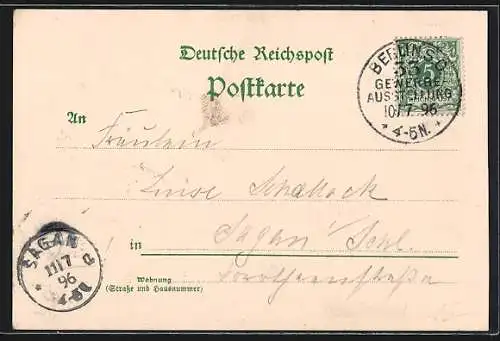 Deutsche Reichspost
Postkarte
BERLIN SO
33
5
GEWERBE
AUSSTELLUNG
10/7 96
* 4-5N. *
An
Fräulein
Luise Schallock
in Sagan Schl.
Dorotheenstraße
Wohnung
(Straße und Hausnummer)
SAGAN
11/7
96